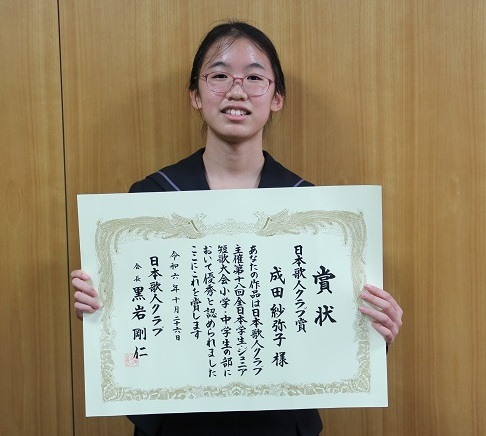 賞状
日本歌人クラブ賞
成田紗弥子様
あなたの作品は日本歌人クラブ
主催第十八回全日本学生・ジュニア
短歌大会小学・中学生の部に
おいて優秀と認められました
ここにこれを賞します
令和六年十月二十六日
日本歌人クラブ
会長 黒岩剛仁